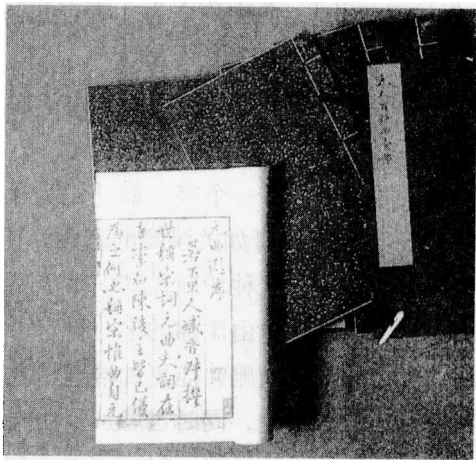 元人百種曲
元曲選序
若下里人臧晉叔撰
世稱宋詞元曲夫詞在
唐李白陳後主皆已優
為之何必稱宋惟曲自元